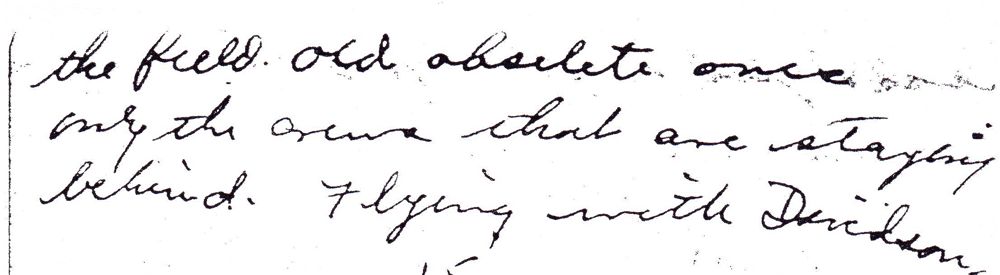 the field. Old obselete ones
only the crews that are staying
behind. Flying with Davidson.